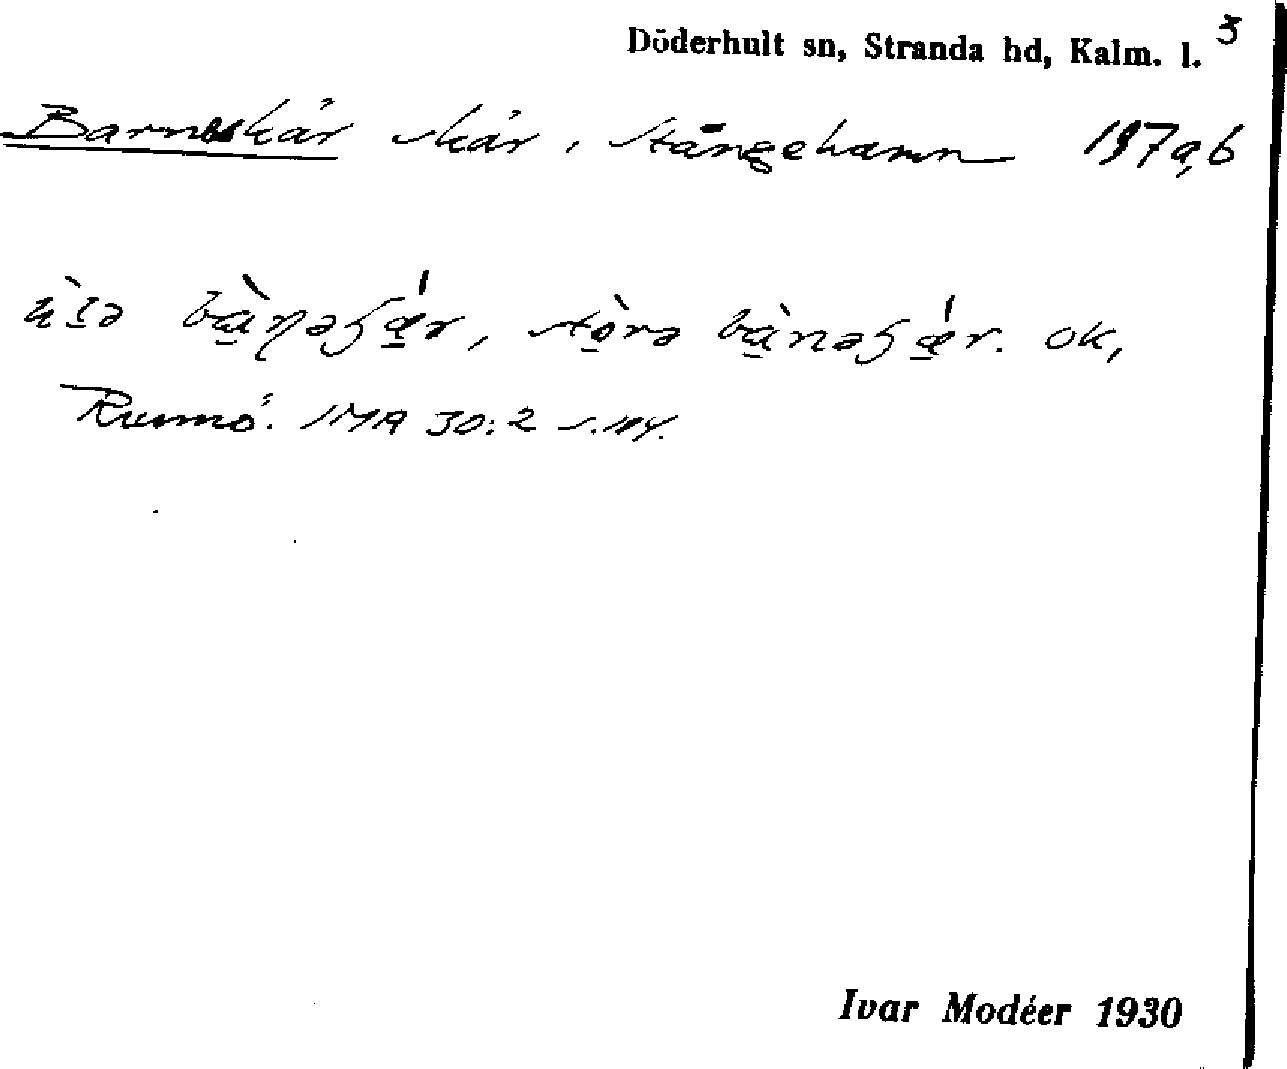 Döderhult sn, Stranda hd, Kalm. l. 3
Barneskär skär, Stångehamn 197a,b
bà̱ɳəʃǽ̱r, stò̱rə bà̱nəʃǽ̱r. ok,
Runnö. IMA 30:2 s. 114.
Ivar Modéer 1930